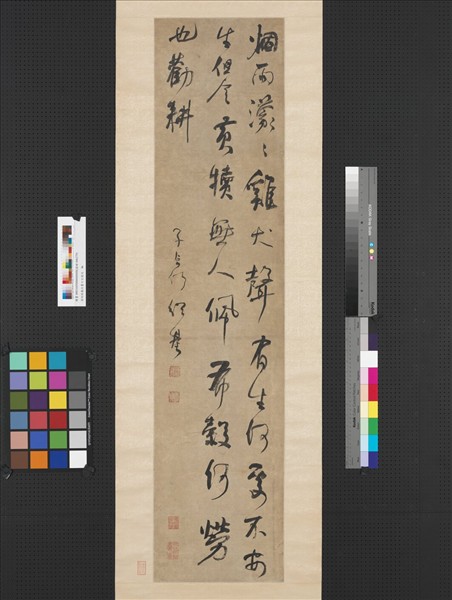 烟雨濛〻雞犬聲有生何處不安
生但令黃犢無人佩布穀何勞
也勸耕